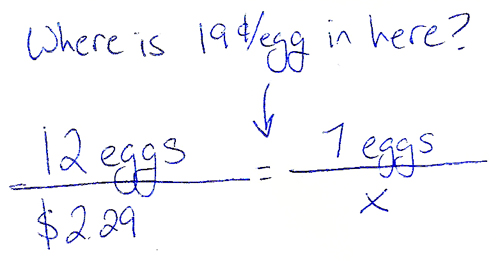 Where is 19¢/egg in here?
12 eggs = 7 eggs
$2.29 x